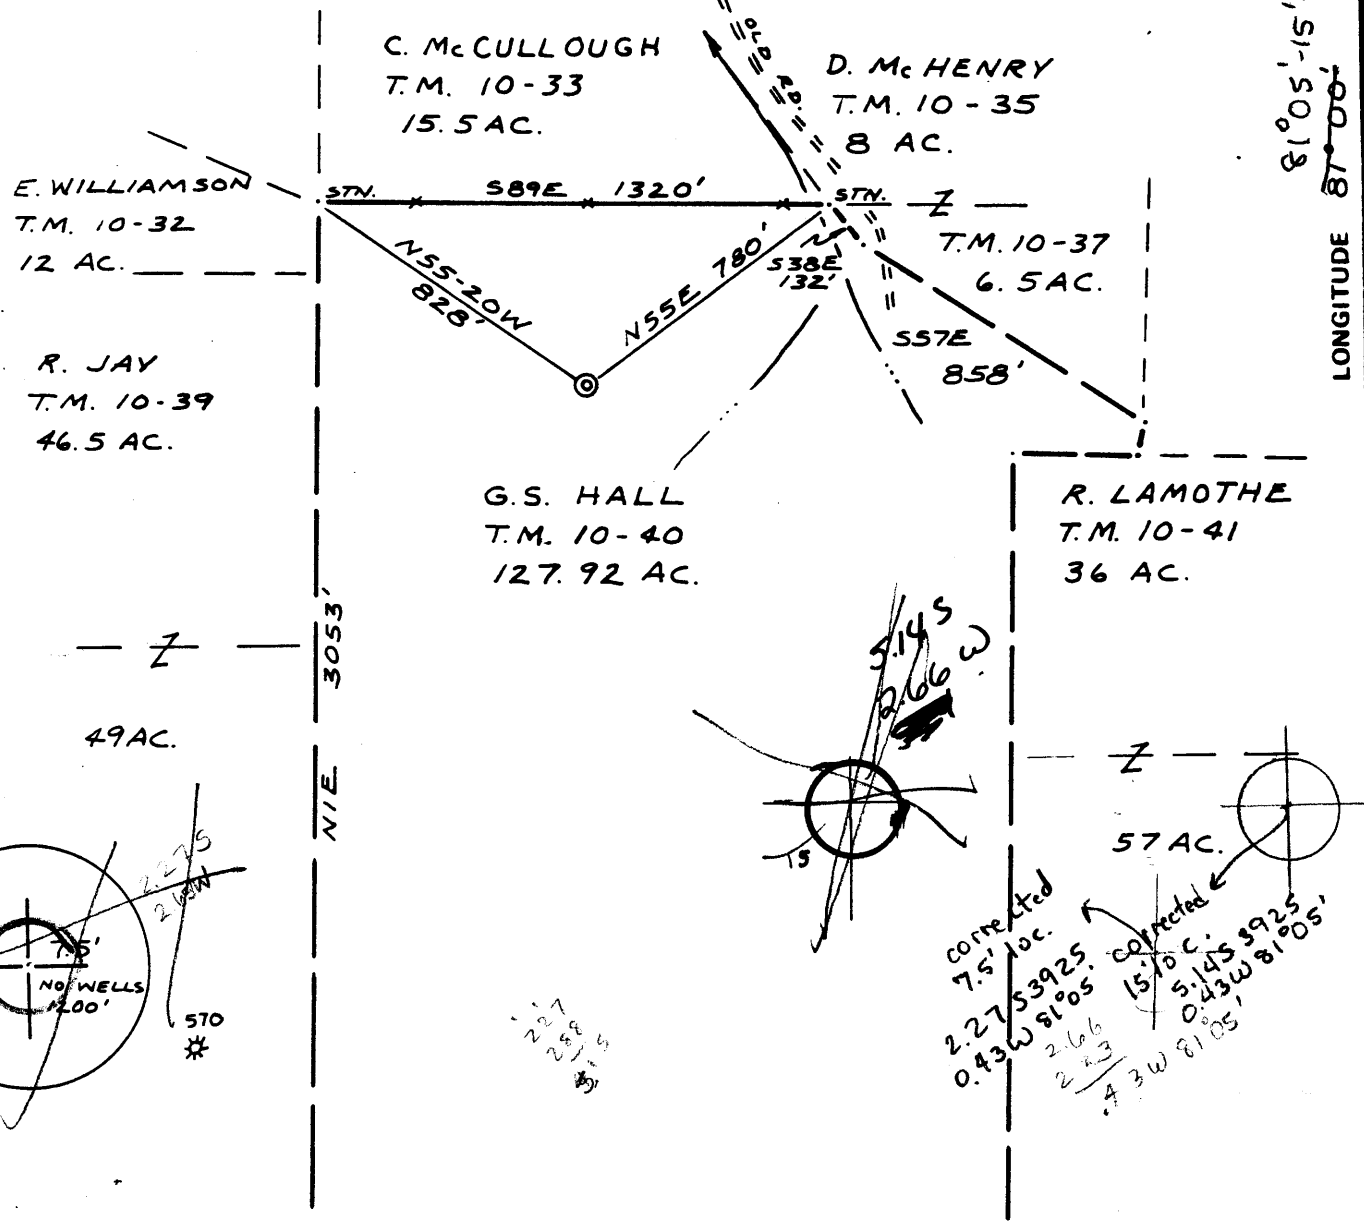 C. McCULLOUGH
T.M. 10-33
15.5 AC.
OLD RD.
D. McHENRY
T.M. 10-35
8 AC.
81°05'-15'
LONGITUDE 81°00'
E. WILLIAMSON
T.M. 10-32
12 AC.
STN. S89E 1320' STN.
Z
T.M. 10-37
6.5 AC.
N55-20W
828'
N55E 780'
S38E
132'
S57E
858'
R. JAY
T.M. 10-39
46.5 AC.
G.S. HALL
T.M. 10-40
127.92 AC.
R. LAMOTHE
T.M. 10-41
36 AC.
N1E 3053'
Z
49 AC.
5.14 S
2.66 W
15
Z
57 AC.
2.27 S
7.5'
NO WELLS
1200'
570
corrected
7.5' loc.
2.27 S 3925
0.43 W 81°05'
corrected
15' loc.
5.14 S 3925
0.43 W 81°05'
2.66
2 23
.43 W 81°05'
2.27
288